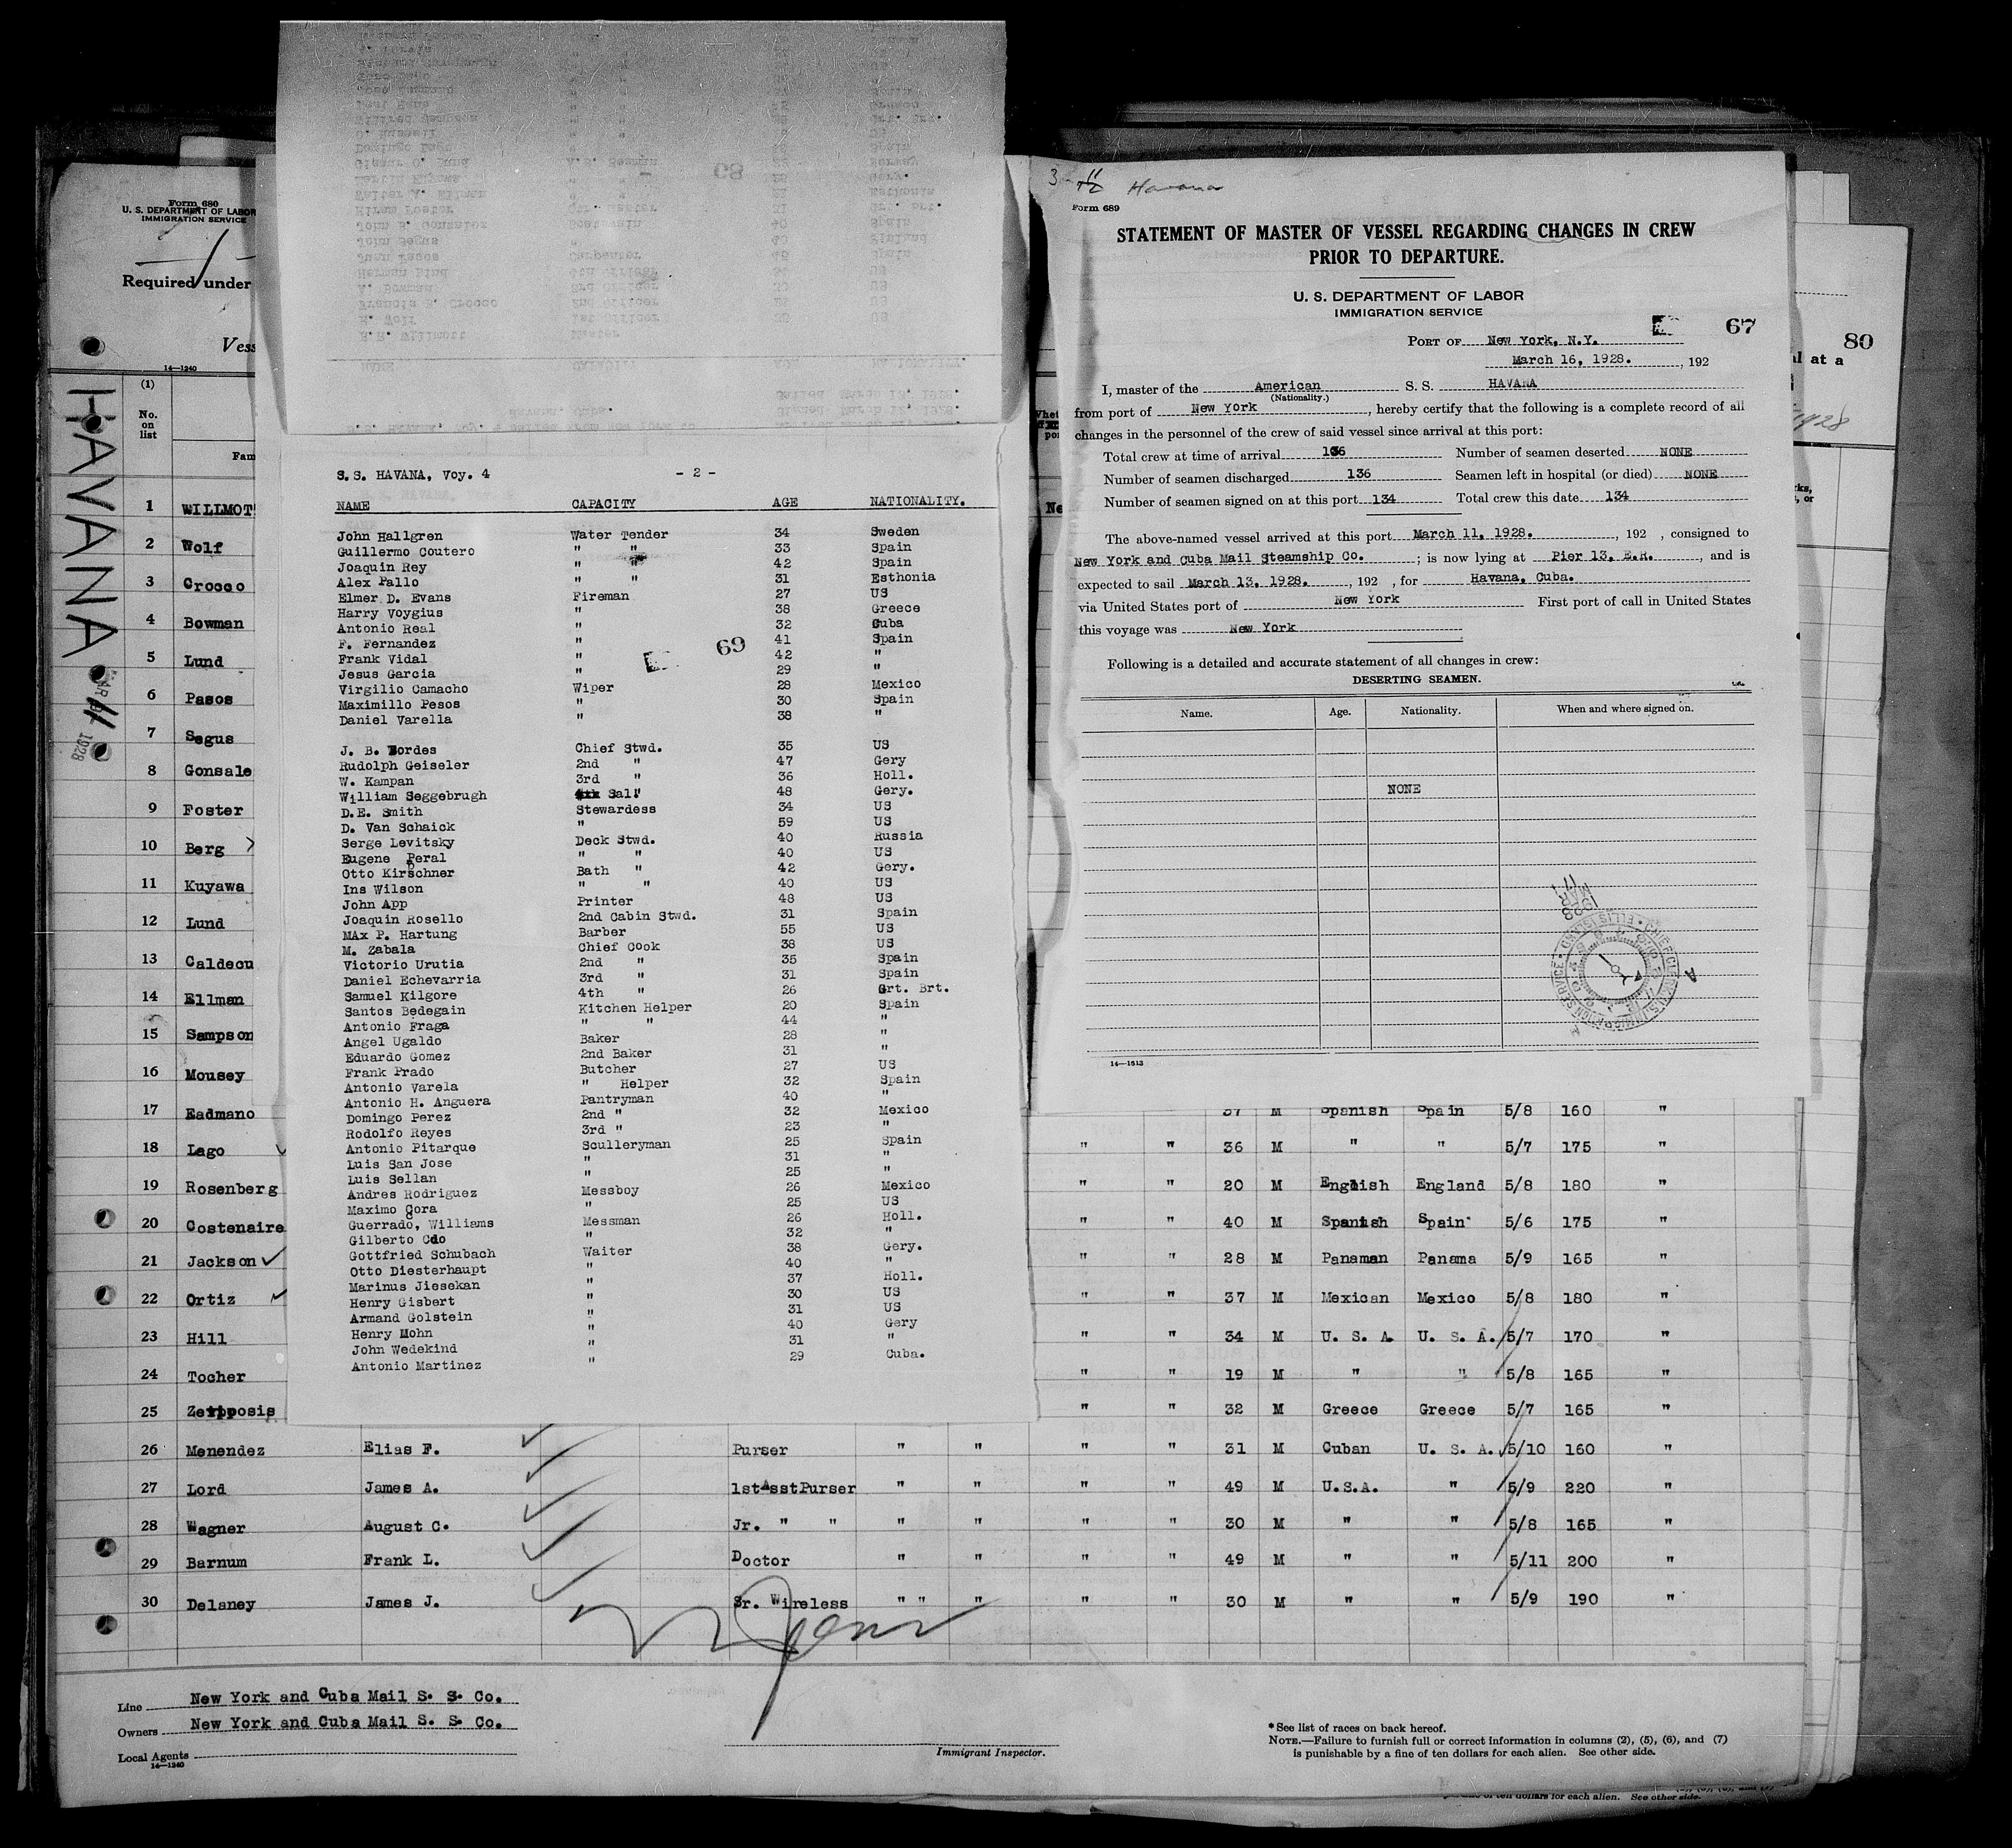 Form 680
U. S. DEPARTMENT OF LABOR
IMMIGRATION SERVICE
Required under
Vess
14—1240
HAVANA
MAR 11 1928
(1)
No. on list
Fam
1 WILLMOTT
2 Wolf
3 Crocco
4 Bowman
5 Lund
6 Pasos
7 Segus
8 Gonsale
9 Foster
10 Berg
11 Kuyawa
12 Lund
13 Caldecu
14 Ellman
15 Sampson
16 Mousey
17 Eadmano
18 Lago
19 Rosenberg
20 Costenaire
21 Jackson
22 Ortiz
23 Hill
24 Tocher
25 Zeipposis
68
S.S. HAVANA, Voy. 4 - 2 -
NAME CAPACITY AGE NATIONALITY.
John Hallgren Water Tender 34 Sweden
Guillermo Coutero " " 33 Spain
Joaquin Rey " " 42 Spain
Alex Pallo " " 31 Esthonia
Elmer D. Evans Fireman 27 US
Harry Voygius " 38 Greece
Antonio Real " 32 Cuba
F. Fernandez " 41 Spain
Frank Vidal " 42 "
Jesus Garcia " 29 "
Virgilio Camacho Wiper 28 Mexico
Maximillo Pesos " 30 Spain
Daniel Varella " 38 "
69
J. B. Bordes Chief Stwd. 35 US
Rudolph Geiseler 2nd " 47 Gery
W. Kampan 3rd " 36 Holl.
William Seggebrugh 4th Sal" 48 Gery.
D.E. Smith Stewardess 34 US
D. Van Schaick " 59 US
Serge Levitsky Deck Stwd. 40 Russia
Eugene Peral " " 40 US
Otto Kirschner Bath " 42 Gery.
Ins Wilson " " 40 US
John App Printer 48 US
Joaquin Rosello 2nd Cabin Stwd. 31 Spain
MAx P. Hartung Barber 55 US
M. Zabala Chief Cook 38 US
Victorio Urutia 2nd " 35 Spain
Daniel Echevarria 3rd " 31 Spain
Samuel Kilgore 4th " 26 Grt. Brt.
Santos Bedegain Kitchen Helper 20 Spain
Antonio Fraga " " 44 "
Angel Ugaldo Baker 28 "
Eduardo Gomez 2nd Baker 31 "
Frank Prado Butcher 27 US
Antonio Varela " Helper 32 Spain
Antonio H. Anguera Pantryman 40 "
Domingo Perez 2nd " 32 Mexico
Rodolfo Reyes 3rd " 23 "
Antonio Pitarque Sculleryman 25 Spain
Luis San Jose " 31 "
Luis Sellan " 25 "
Andres Rodriguez Messboy 26 Mexico
Maximo Cora " 25 US
Guerrado, Williams Messman 26 Holl.
Gilberto Cdo " 32 "
Gottfried Schubach Waiter 38 Gery.
Otto Diesterhaupt " 40 "
Marinus Jiesekan " 37 Holl.
Henry Gisbert " 30 US
Armand Golstein " 31 US
Henry Mohn " 40 Gery
John Wedekind " 31 "
Antonio Martinez " 29 Cuba.
Havana
Form 689
STATEMENT OF MASTER OF VESSEL REGARDING CHANGES IN CREW
PRIOR TO DEPARTURE.
U. S. DEPARTMENT OF LABOR
IMMIGRATION SERVICE
67
PORT OF New York, N.Y.
March 16, 1928. , 192
I, master of the American S. S. HAVANA
(Nationality.)
from port of New York , hereby certify that the following is a complete record of all
changes in the personnel of the crew of said vessel since arrival at this port:
Total crew at time of arrival 136 Number of seamen deserted NONE
Number of seamen discharged 136 Seamen left in hospital (or died) NONE
Number of seamen signed on at this port 134 Total crew this date 134
The above-named vessel arrived at this port March 11, 1928. , 192 , consigned to
New York and Cuba Mail Steamship Co. ; is now lying at Pier 13, E.R. , and is
expected to sail March 13, 1928. , 192 , for Havana, Cuba.
via United States port of New York First port of call in United States
this voyage was New York
Following is a detailed and accurate statement of all changes in crew:
DESERTING SEAMEN.
Name. Age. Nationality. When and where signed on.
NONE
14—1613
80
al at a
1928
37 M Spanish Spain 5/8 160 "
" " 36 M " " 5/7 175 "
" " 20 M English England 5/8 180 "
" " 40 M Spanish Spain 5/6 175 "
" " 28 M Panaman Panama 5/9 165 "
" " 37 M Mexican Mexico 5/8 180 "
" " 34 M U. S. A. U. S. A. 5/7 170 "
" " 19 M " " 5/8 165 "
" " 32 M Greece Greece 5/7 165 "
26 Menendez Elias F. Purser " " " " 31 M Cuban U. S. A. 5/10 160 "
27 Lord James A. 1stAsstPurser " " " " 49 M U.S.A. " 5/9 220 "
28 Wagner August C. Jr. " " " " " " 30 M " " 5/8 165 "
29 Barnum Frank L. Doctor " " " " 49 M " " 5/11 200 "
30 Delaney James J. Sr. Wireless " " " " " 30 M " " 5/9 190 "
Line New York and Cuba Mail S. S. Co.
Owners New York and Cuba Mail S. S. Co.
Local Agents
14—1240
Immigrant Inspector.
*See list of races on back hereof.
NOTE.—Failure to furnish full or correct information in columns (2), (5), (6), and (7)
is punishable by a fine of ten dollars for each alien. See other side.
of ten dollars for each alien. See other side.